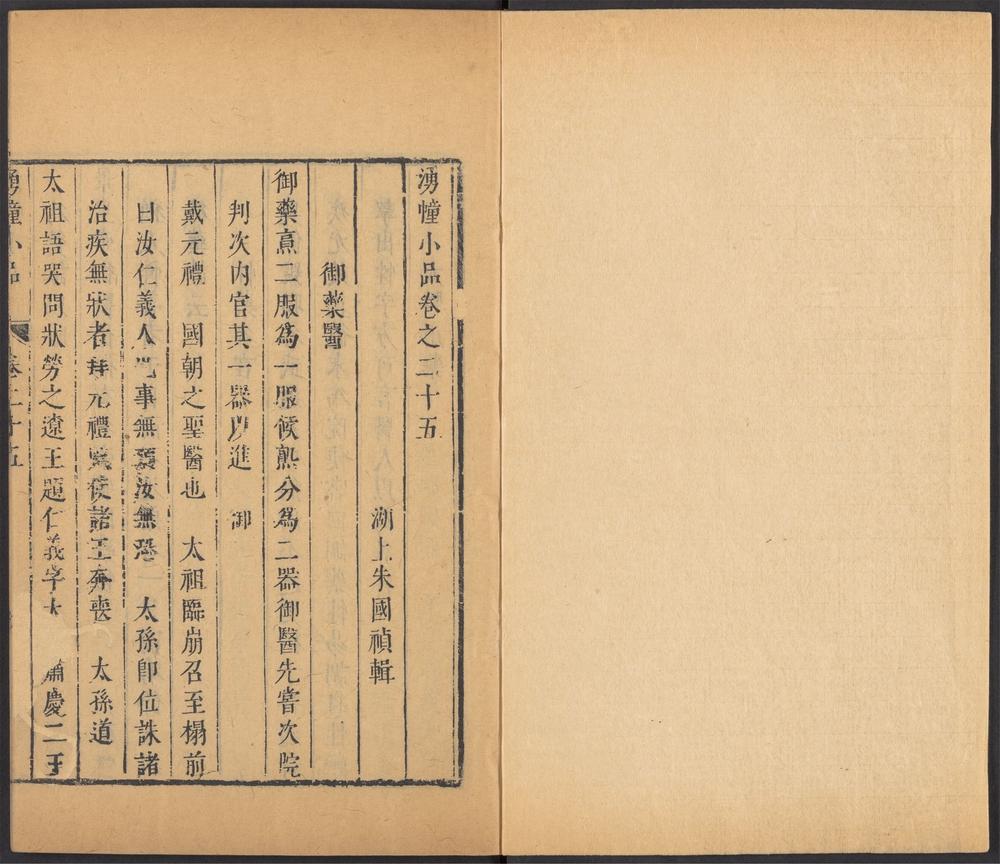 湧幢小品卷之二十五
湖上朱國禎輯
御藥醫
御藥熹二服為一服候熟分為二器御醫先嘗次院
判次內官其一器以進 御
戴元禮 國朝之聖醫也 太祖臨崩召至榻前
曰汝仁義人 事無預汝無恐 太孫即位誅諸
治疾無狀者 元禮 使諸王奔喪 太孫道
太祖語哭問狀勞之遼王題仁義字大 肅慶二王
湧幢小品 卷二十五